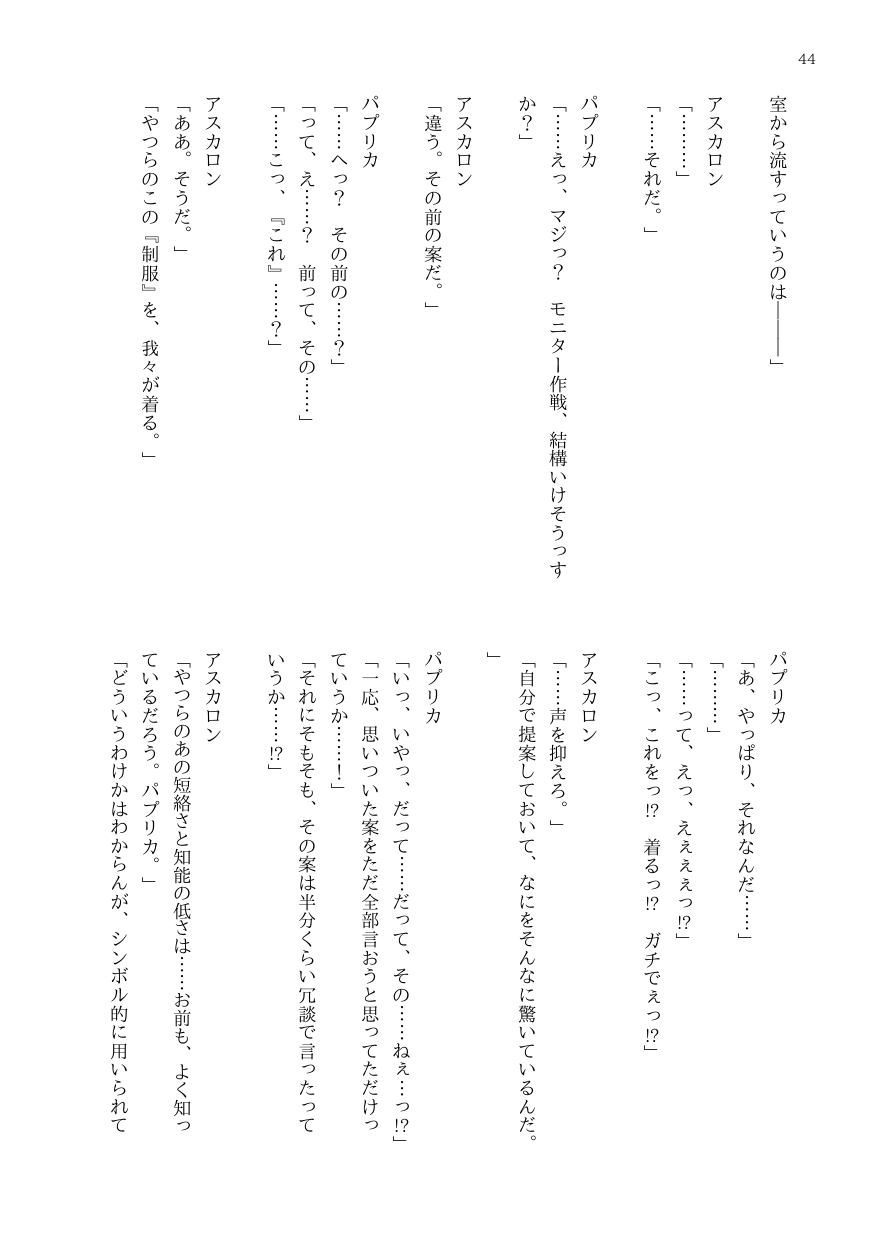 44
室から流すっていうのは―――」
アスカロン
「………」
「……それだ。」
パプリカ
「……えっ、マジっ？　モニター作戦、結構いけそうっす
か？」
アスカロン
「違う。その前の案だ。」
パプリカ
「……へっ？　その前の……？」
「って、え……？　前って、その……」
「……こっ、『これ』……？」
アスカロン
「ああ。そうだ。」
「やつらのこの『制服』を、我々が着る。」
パプリカ
「あ、やっぱり、それなんだ……」
「………」
「……って、えっ、えぇぇぇっ⁉」
「こっ、これをっ⁉　着るっ⁉　ガチでぇっ⁉」
アスカロン
「……声を抑えろ。」
「自分で提案しておいて、なにをそんなに驚いているんだ。
」
パプリカ
「いっ、いやっ、だって……だって、その……ねぇ…っ⁉」
「一応、思いついた案をただ全部言おうと思ってただけっ
ていうか……！」
「それにそもそも、その案は半分くらい冗談で言ったって
いうか……⁉」
アスカロン
「やつらのあの短絡さと知能の低さは……お前も、よく知っ
ているだろう。パプリカ。」
「どういうわけかはわからんが、シンボル的に用いられて